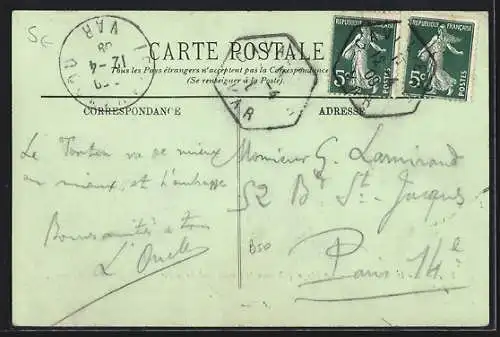 5F
VAR
12-4
08
CARTE POSTALE
Tous les Pays étrangers n'acceptent pas la Correspondance
(Se renseigner à la Poste).
VAR
REPUBLIQUE FRANÇAISE
5c
POSTES
REPUBLIQUE FRANÇAISE
5c
POSTES
CORRESPONDANCE
ADRESSE
Le Tonton va de mieux
en mieux, et t'embrasse
Bonne santé à tous
L'Oncle
Monsieur G. Lamirand
52 Bd St. Jacques
B50
Paris 14e